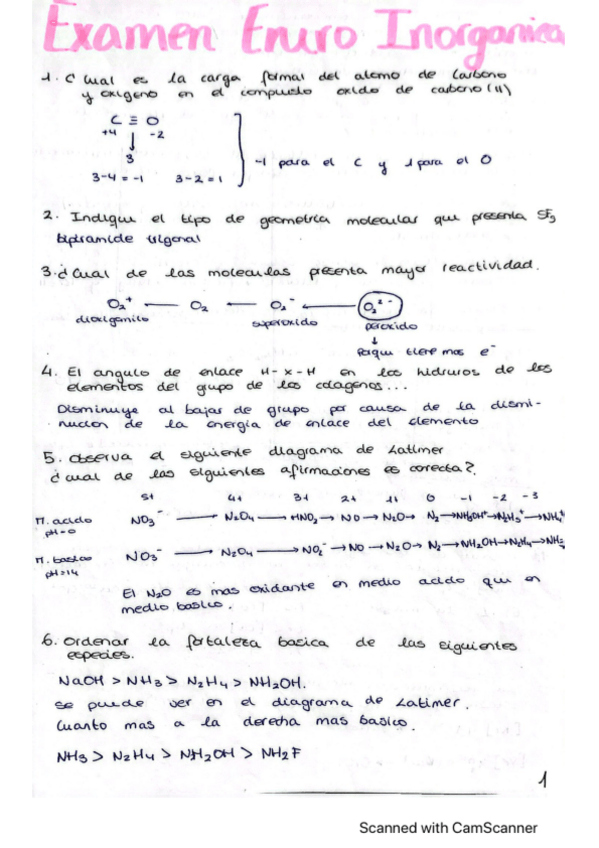 Examen Enero Inorganica
1. ¿Cual es la carga formal del atomo de carbono
y oxigeno en el compuesto oxido de carbono (II)
C ≡ O
+4 -2
3
3-4=-1 3-2=1
-1 para el C y 1 para el O
2. Indique el tipo de geometria molecular que presenta SF5
bipiramide trigonal
3. ¿Cual de las moleculas presenta mayor reactividad.
O2+ ← O2 ← O2- ← O2 2-
dioxigenilo superoxido peroxido
↓
Porque tiene mas e-
4. El angulo de enlace H-X-H en los hidruros de los
elementos del grupo de los calogenos...
Disminuye al bajar de grupo por causa de la dismi-
nucion de la energia de enlace del elemento
5. Observa el siguiente diagrama de Latimer
¿cual de las siguientes afirmaciones es correcta?
5+ 4+ 3+ 2+ 1+ 0 -1 -2 -3
M. acido NO3- → N2O4 → HNO2 → NO → N2O → N2 → NH3OH+ → N2H5+ → NH4+
pH=0
M. basico NO3- → N2O4 → NO2- → NO → N2O → N2 → NH2OH → N2H4 → NH3
pH=14
El N2O es mas oxidante en medio acido que en
medio basico.
6. Ordenar la fortaleza basica de las siguientes
especies.
NaOH > NH3 > N2H4 > NH2OH.
se puede ver en el diagrama de Latimer.
Cuanto mas a la derecha mas basico.
NH3 > N2H4 > NH2OH > NH2F
1
Scanned with CamScanner